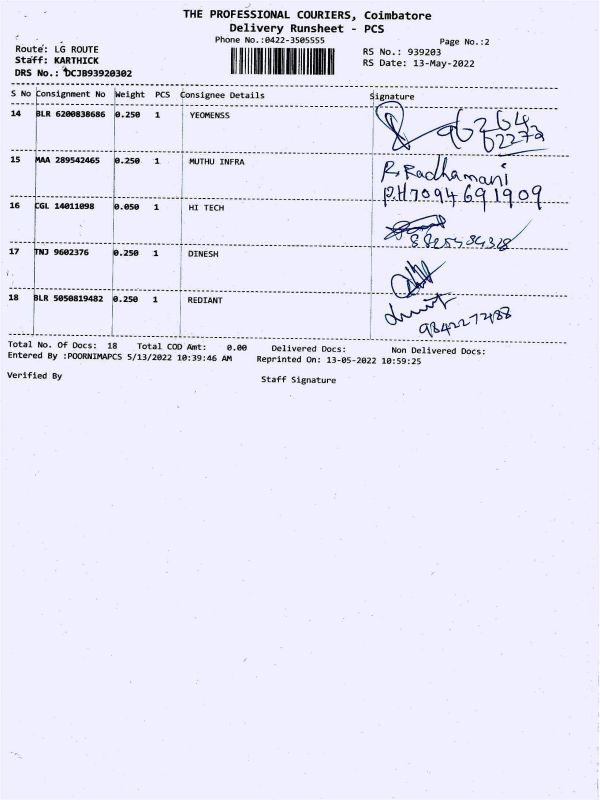 THE PROFESSIONAL COURIERS, Coimbatore
Delivery Runsheet - PCS
Phone No.:0422-3505555
Page No.:2
Route: LG ROUTE
RS No.: 939203
Staff: KARTHICK
RS Date: 13-May-2022
DRS No.: DCJB93920302
S No Consignment No Weight PCS Consignee Details Signature
14 BLR 6200838686 0.250 1 YEOMENSS
96264
62272
15 MAA 289542465 0.250 1 MUTHU INFRA R.Radhamani
P.H7094691909
16 CGL 14011098 0.050 1 HI TECH
8825484328
17 TNJ 9602376 0.250 1 DINESH
18 BLR 5050819482 0.250 1 REDIANT
9842277488
Total No. Of Docs: 18 Total COD Amt: 0.00 Delivered Docs: Non Delivered Docs:
Entered By :POORNIMAPCS 5/13/2022 10:39:46 AM Reprinted On: 13-05-2022 10:59:25
Verified By Staff Signature